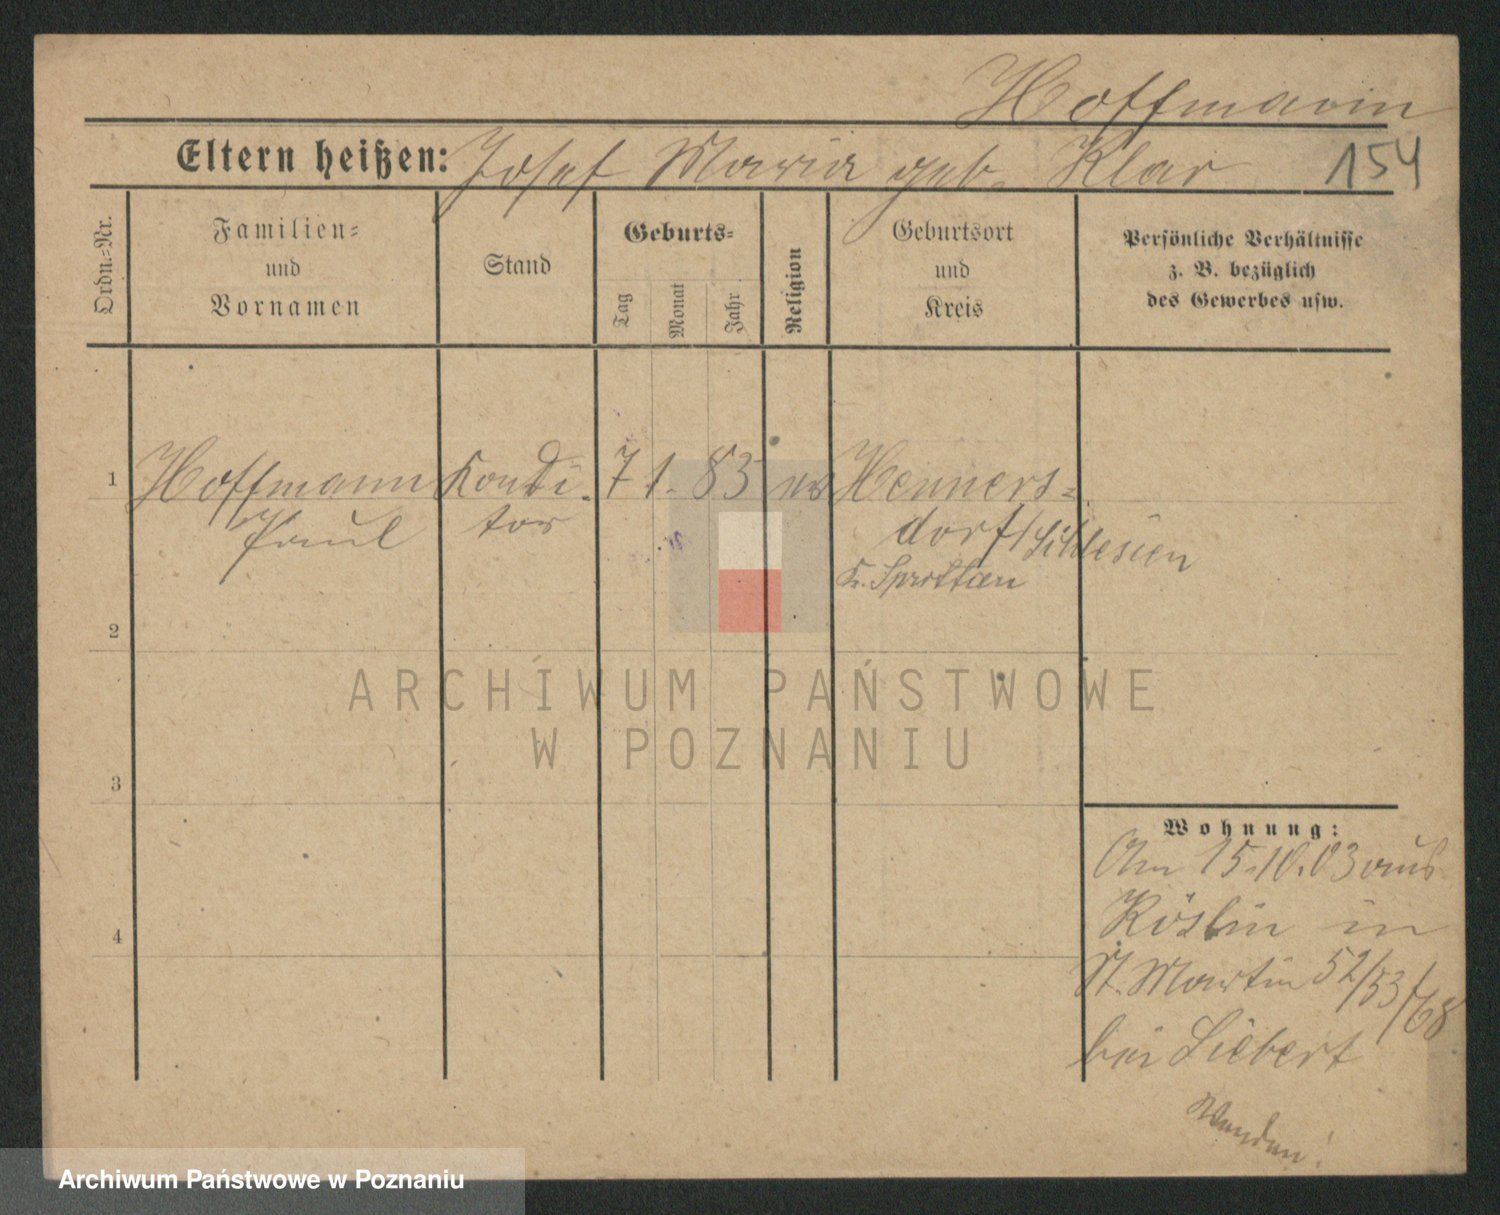 Hoffmann
Eltern heißen: Josef Maria geb. Klar 154
Ordn.-Nr.
Familien-
und
Vornamen
Stand
Geburts-
Tag
Monat
Jahr
Religion
Geburtsort
und
Kreis
Persönliche Verhältnisse
z. B. bezüglich
des Gewerbes usw.
1 Hoffmann Kondi- 7 1. 83 Henners-
Paul tor dorf/Schlesien
K. Sprottau
2
3
4
Wohnung:
Am 15.10.03 aus
Köslin in
St. Martin 52/53/68
bei Liebert
Wenden!
ARCHIWUM PAŃSTWOWE
W POZNANIU
Archiwum Państwowe w Poznaniu